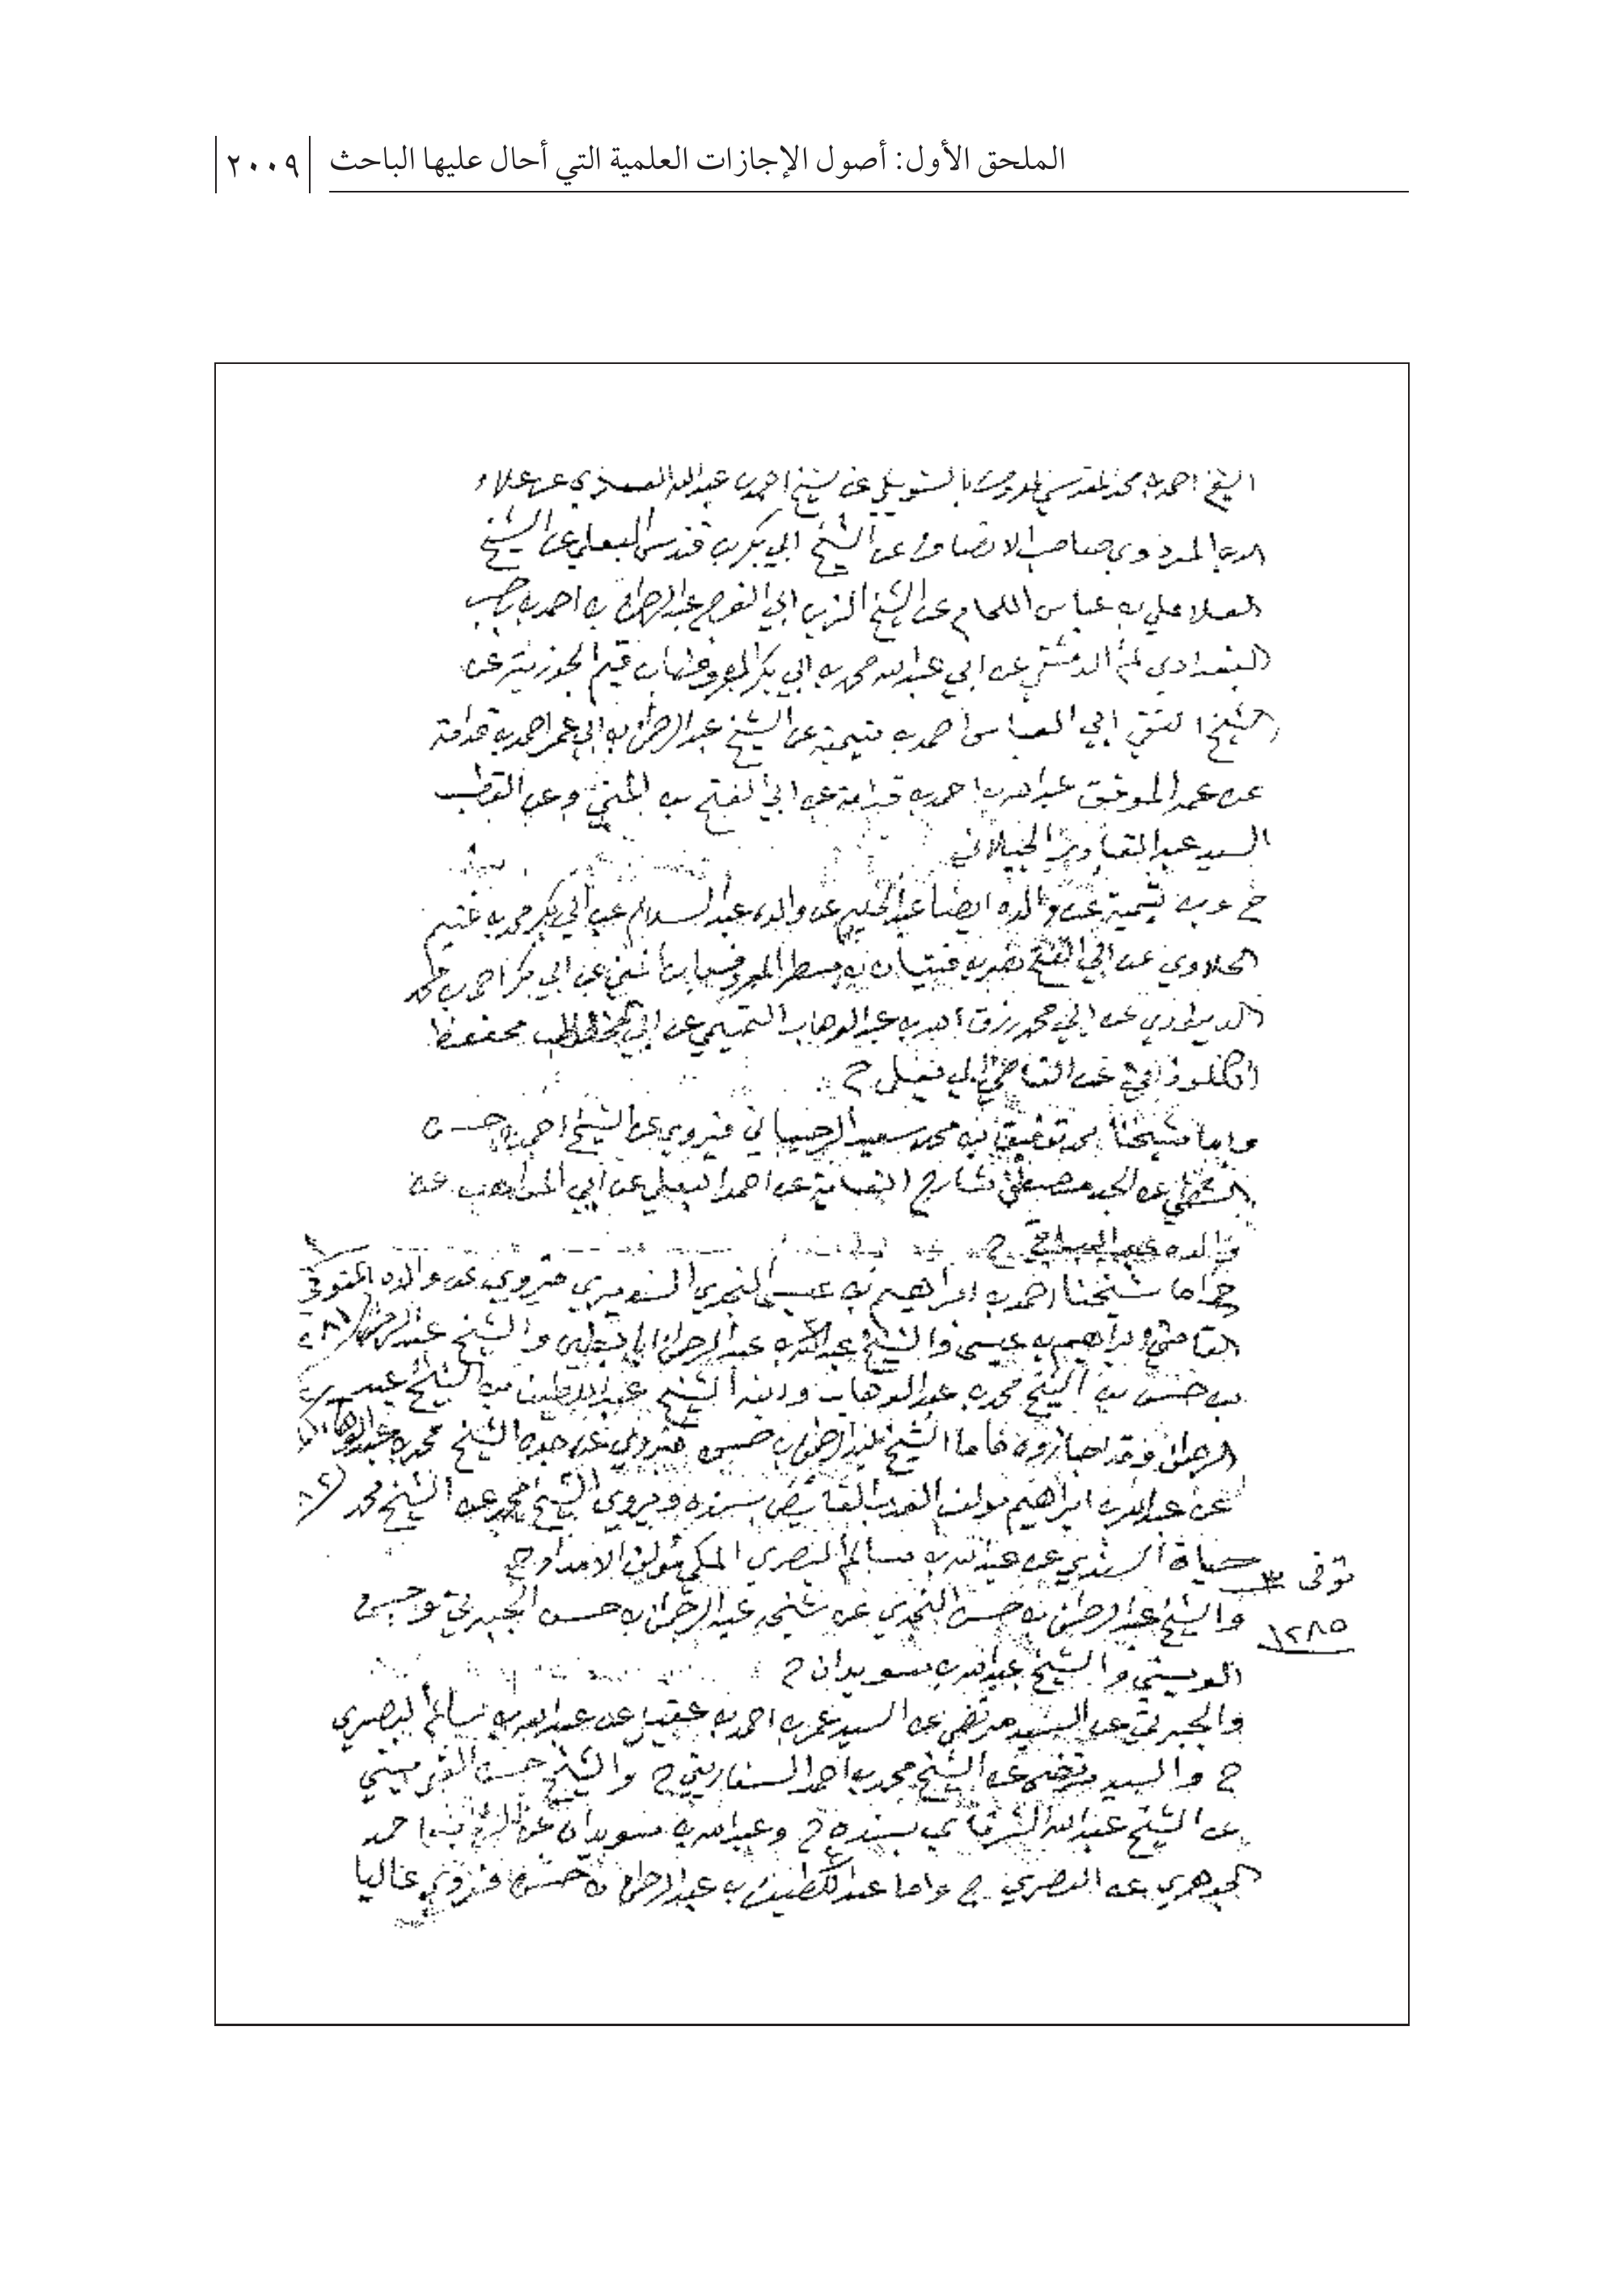 الملحق الأول: أصول الإجازات العلمية التي أحال عليها الباحث
٢٠٠٩
الشيخ احمد بن محمد المقدسي المعروف بالشويكي عن الشيخ احمد بن عبدالله العسكري عن علاء
الدين المرداوي صاحب الانصاف عن الشيخ ابي بكر بن قندس البعلي عن الشيخ
العلاء علي بن عباس اللحام عن الشيخ الزين ابي الفرج عبدالرحمن بن احمد بن رجب
البغدادي ثم الدمشقي عن ابي عبدالله محمد بن ابي بكر المعروف بابن قيم الجوزية عن
الشيخ التقي ابي العباس احمد بن تيمية عن الشيخ عبدالرحمن بن ابي عمر احمد بن قدامة
عن عمه الموفق عبدالله بن احمد بن قدامة عن ابي الفتح بن المني وعن القطب
السيد عبدالقادر الجيلاني
ح وعن تيمية عن والده ايضا عبدالحليم عن والده عبدالسلام عن ابي بكر محمد بن غنيم
الحلاوي عن ابي الفتح نصر بن فتيان بن مطر المعروف بابن المني عن ابي بكر احمد بن محمد
الدينوري عن ابي محمد رزق الله بن عبدالوهاب التميمي عن ابي الخطاب محفوظ
الكلوذاني عن القاضي ابي يعلى ح
واما شيخنا محمد توفيق بن محمد سعيد الرحيباني فيروي عن الشيخ احمد بن حسن
الشطي عن الجد مصطفى شارح الغاية عن احمد البعلي عن ابي المواهب عن
والده عبدالباقي ح
ح واما شيخنا احمد بن ابراهيم بن عيسى النجدي السديري فيروي عن والده المتوفى
القاضي ابراهيم بن عيسى والشيخ عبدالله بن عبدالرحمن ابابطين والشيخ عبدالرحمن
بن حسن بن الشيخ محمد بن عبدالوهاب وابنه الشيخ عبداللطيف بن الشيخ عبد
الرحمن وقد اجازوه فاما الشيخ عبدالرحمن بن حسن فيروي عن جده الشيخ محمد بن عبدالوهاب
عن عبدالله بن ابراهيم مولف العذب الفائض بسنده ويروي الشيخ محمد عن الشيخ محمد
حياة السندي عن عبدالله بن سالم البصري المكي مولف الامداد ح
توفى
١٢٨٥
والشيخ عبدالرحمن بن حسن النجدي عن شيخه عبدالرحمن بن حسن الجبرتي وحسن
القويسني والشيخ عبدالله بن سويدان ح
والجبرتي عن السيد مرتضى عن السيد عمر بن احمد بن عقيل عن عبدالله بن سالم البصري
ح والسيد مرتضى عن الشيخ محمد بن احمد السفاريني ح والشيخ حسن القويسني
عن الشيخ عبدالله الشرقاوي بسنده ح وعبدالله بن سويدان عن احمد
الجوهري عن البصري ح واما عبداللطيف بن عبدالرحمن بن حسن فيروي عاليا